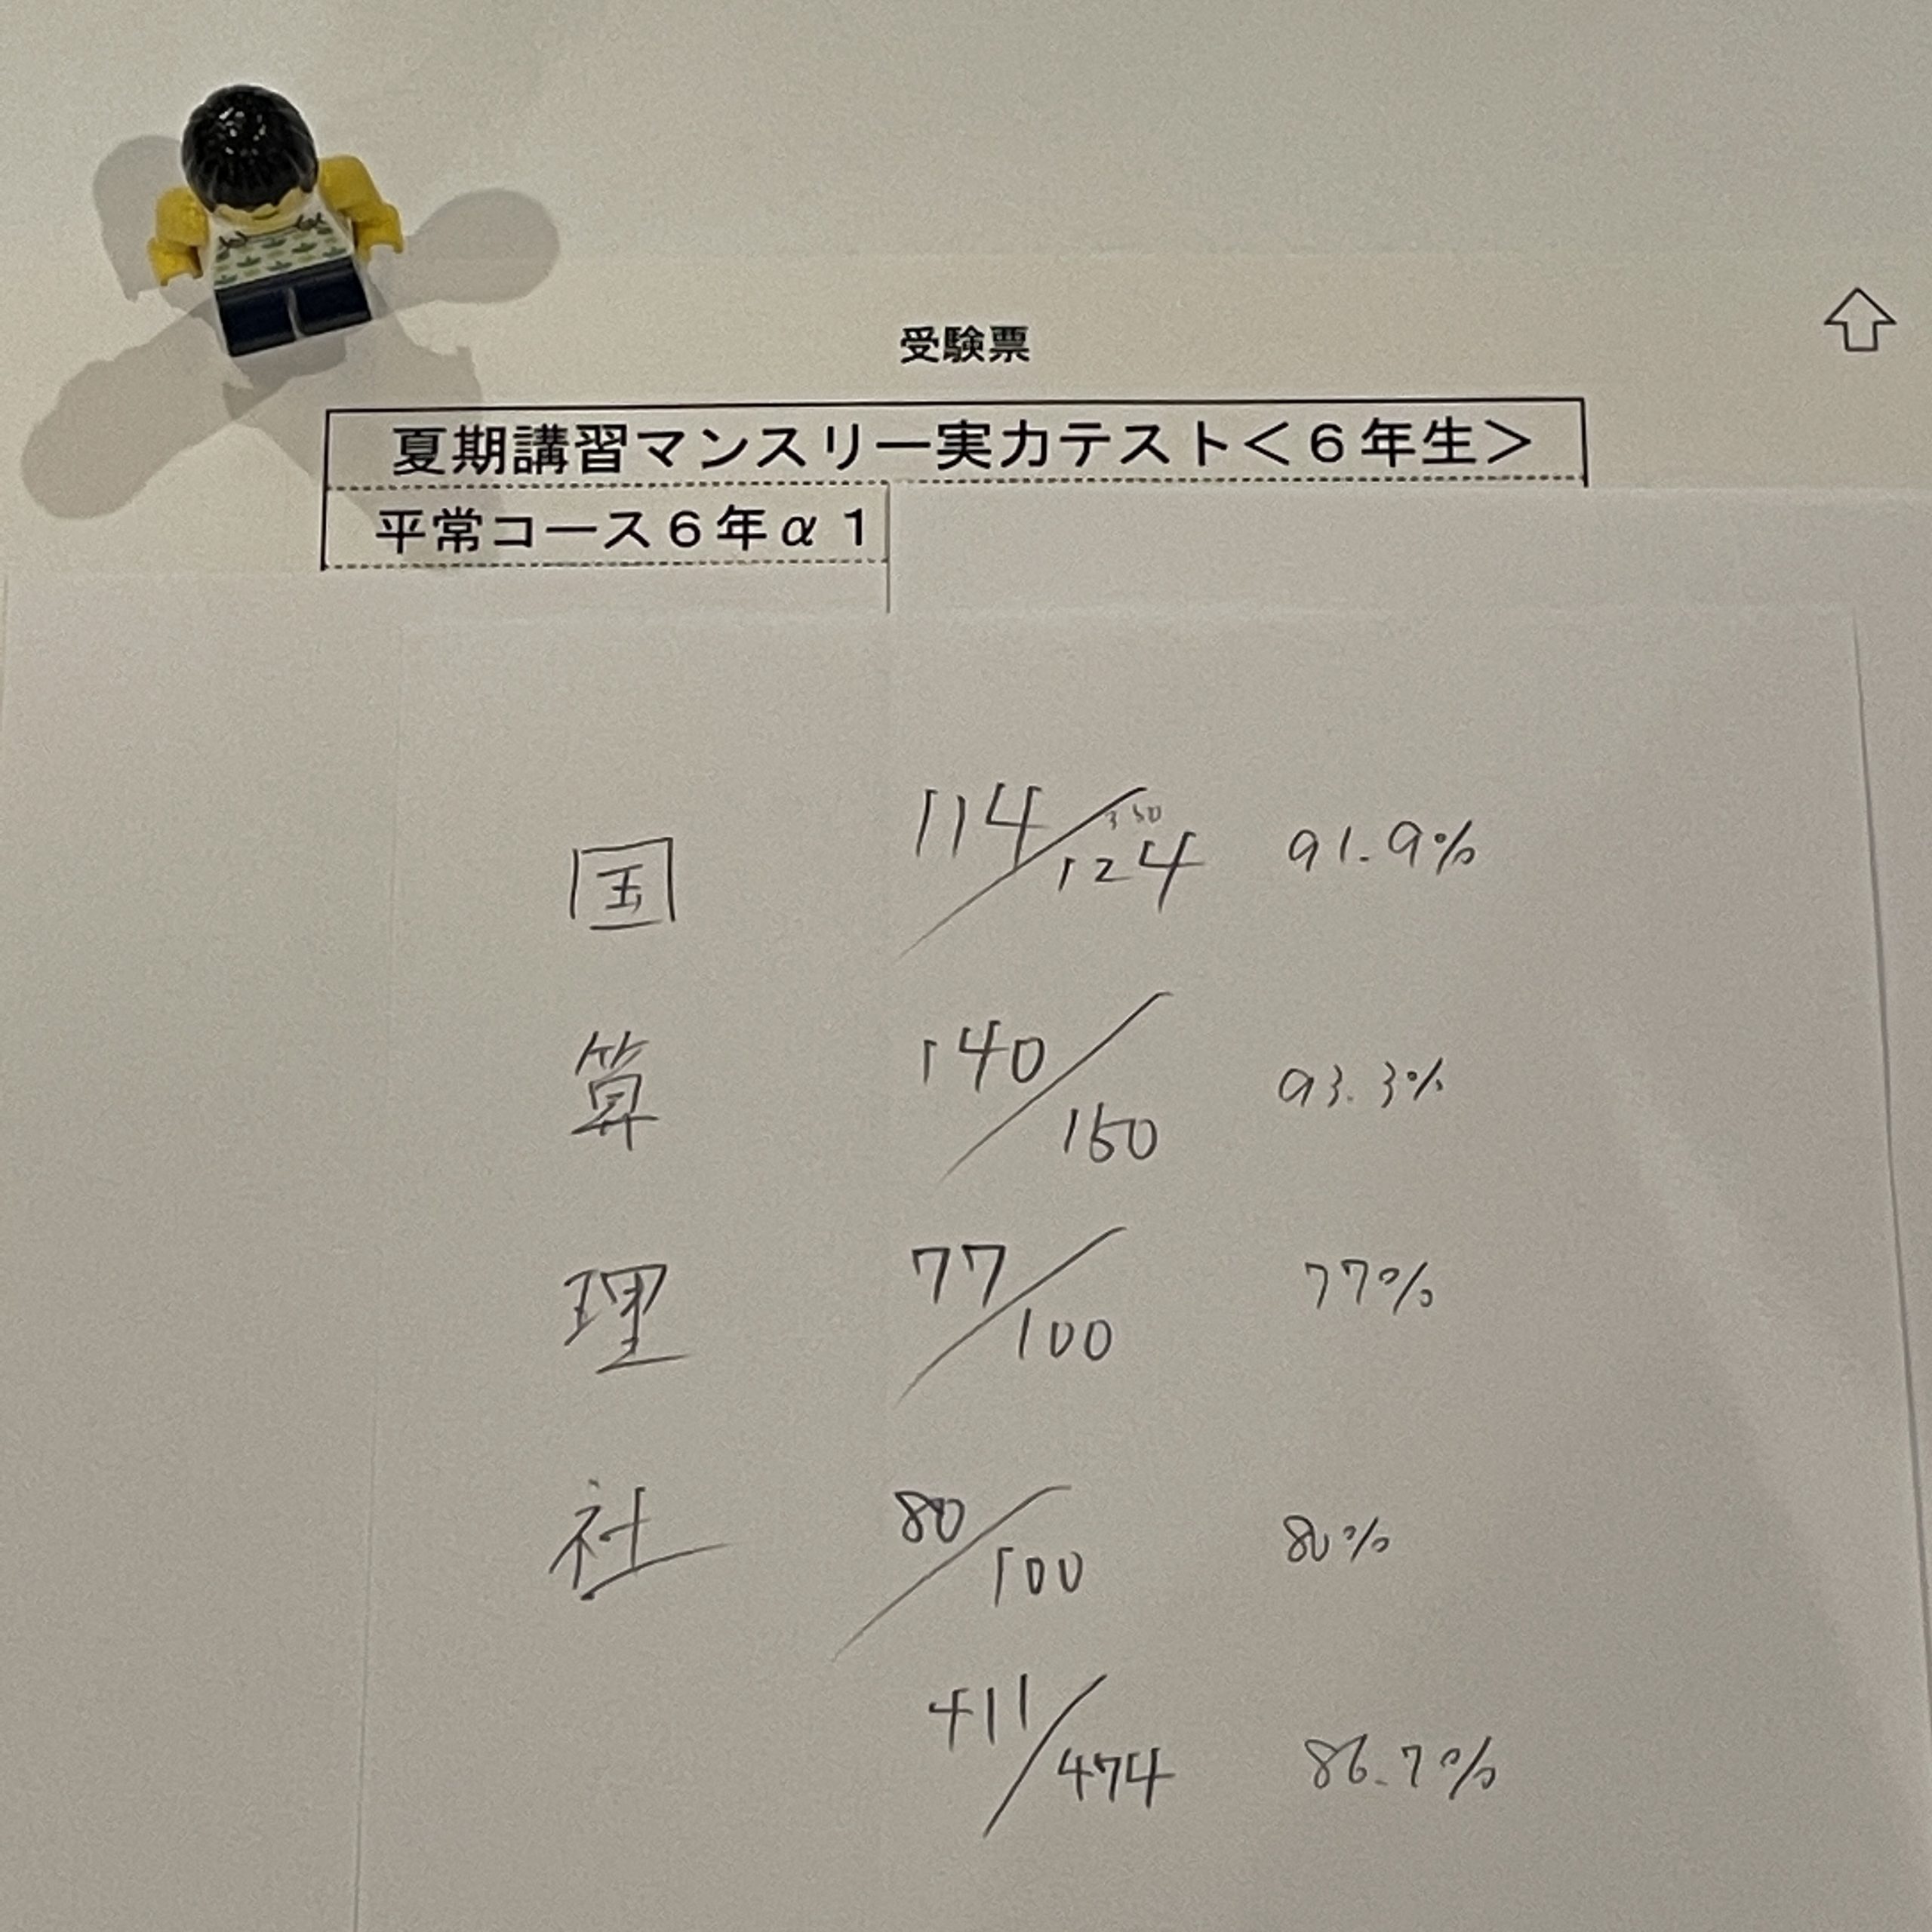 受験票
夏期講習マンスリー実力テスト＜６年生＞
平常コース６年α１
国 114/124 91.9%
算 140/150 93.3%
理 77/100 77%
社 80/100 80%
411/474 86.7%